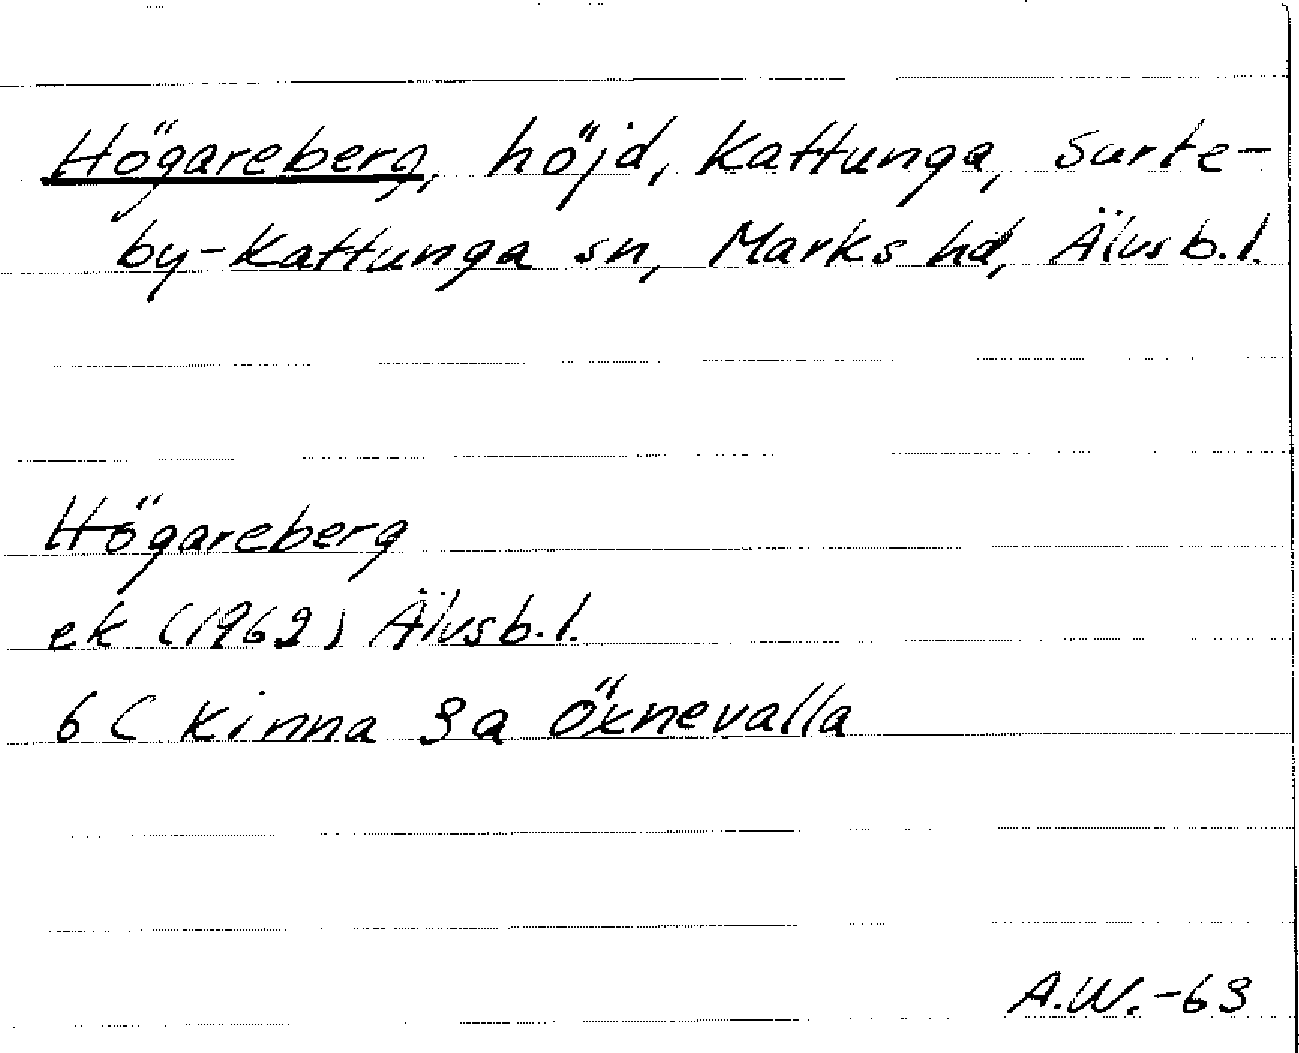 Högareberg, höjd, Kattunga, Surte-
by-Kattunga sn, Marks hd, Älvsb.l.
Högareberg
ek (1962) Älvsb.l.
6 C Kinna 3a Öxnevalla
A.W.-63